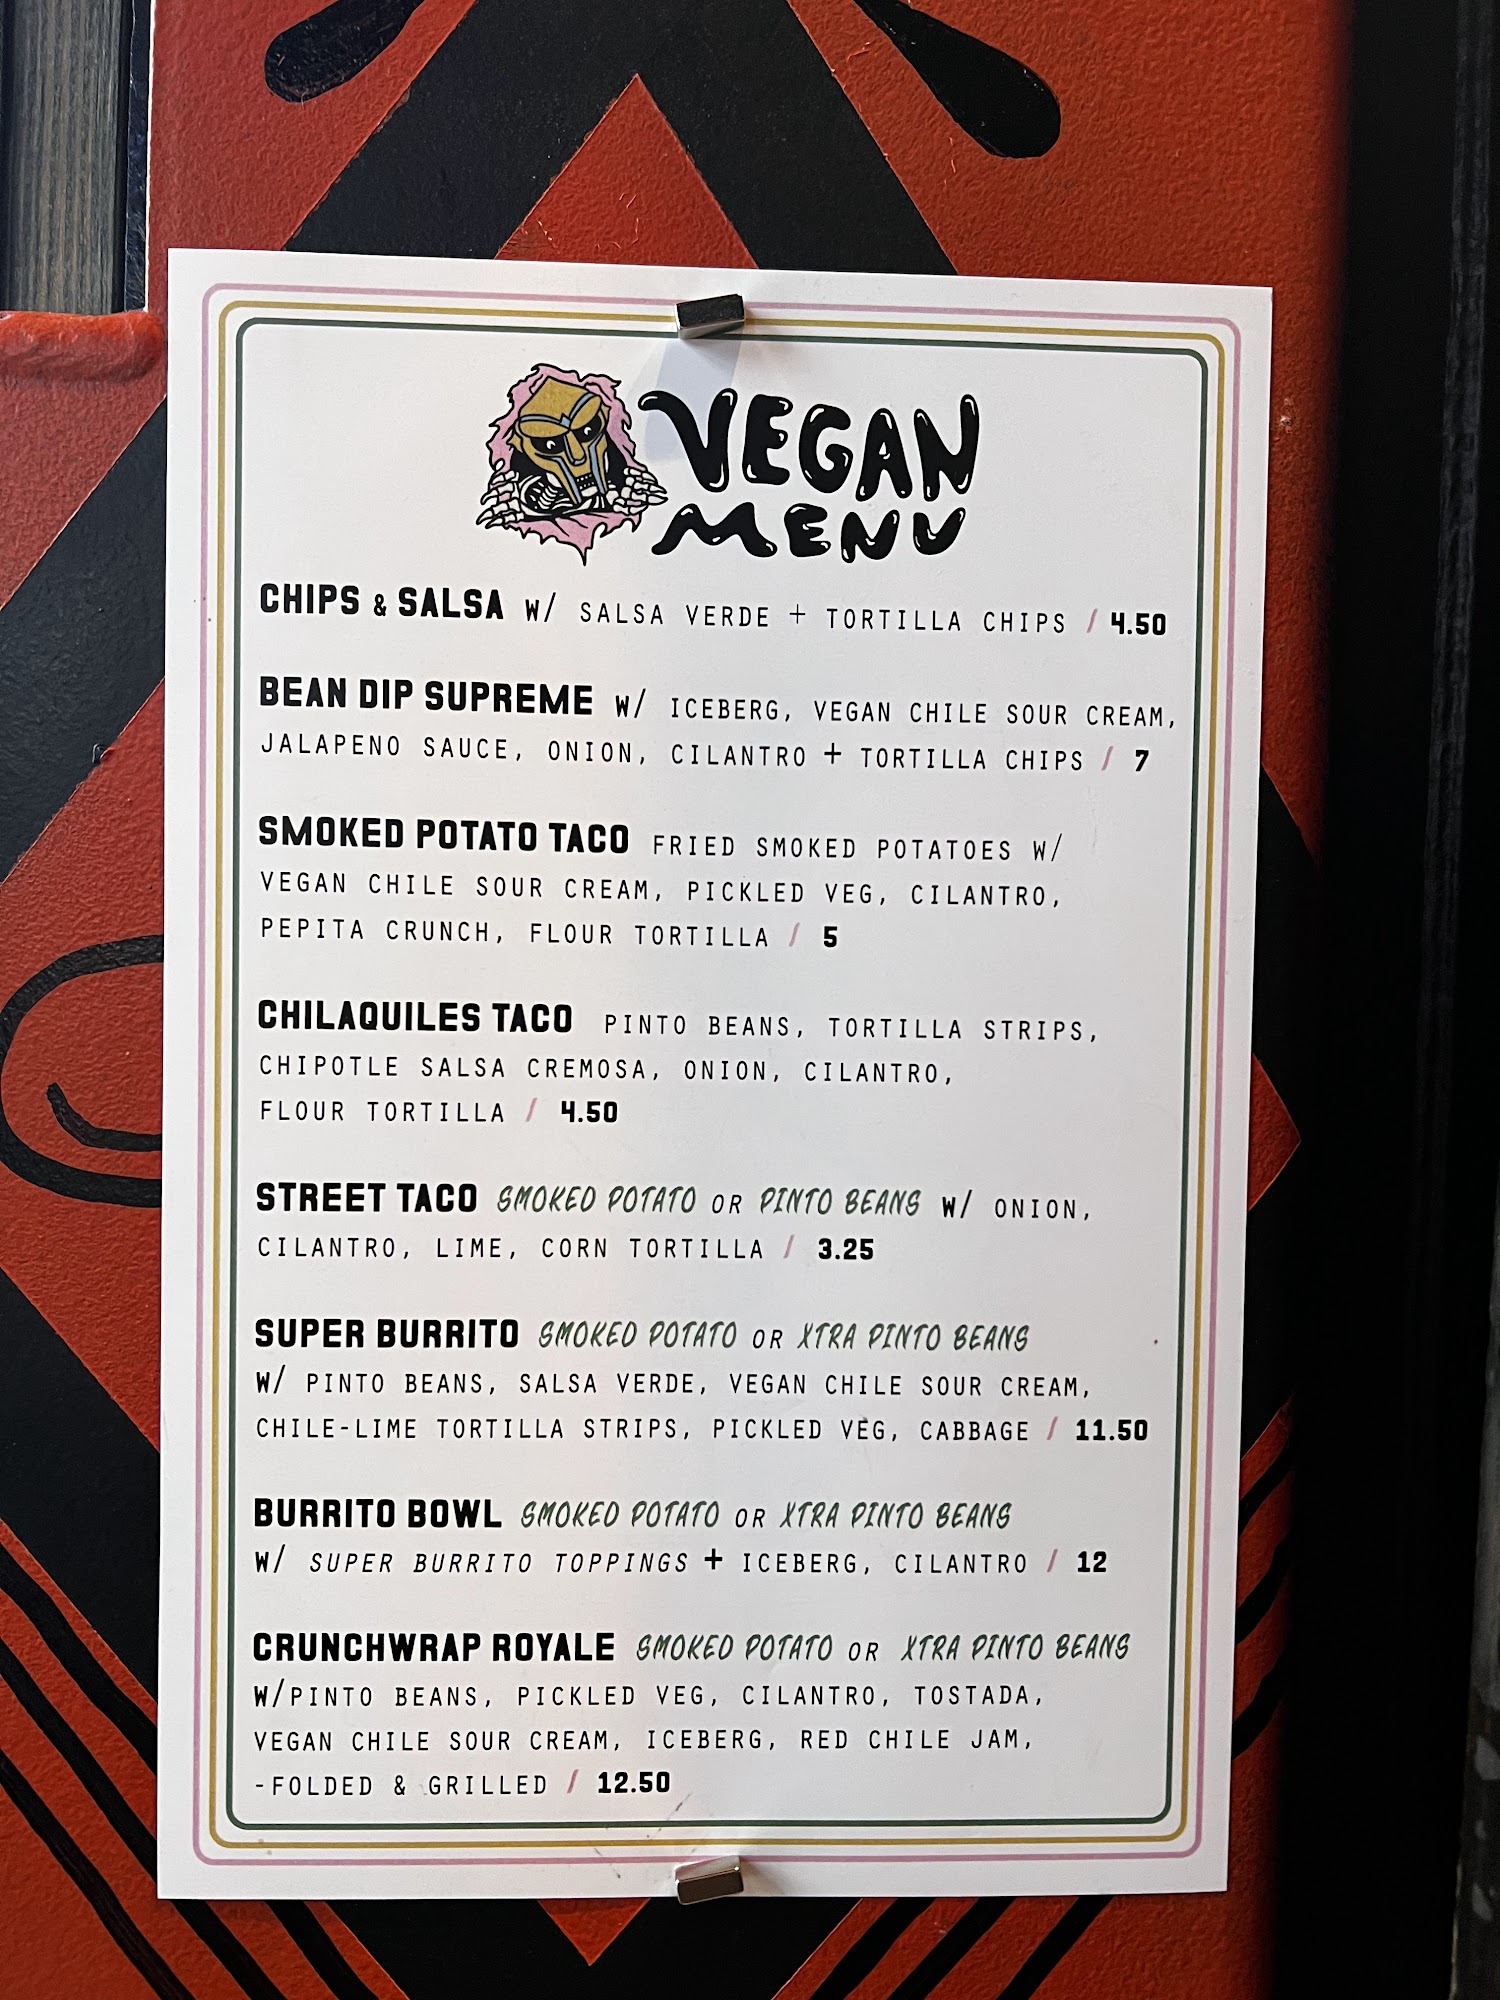 VEGAN
MENU
CHIPS & SALSA W/ SALSA VERDE + TORTILLA CHIPS / 4.50
BEAN DIP SUPREME W/ ICEBERG, VEGAN CHILE SOUR CREAM,
JALAPENO SAUCE, ONION, CILANTRO + TORTILLA CHIPS / 7
SMOKED POTATO TACO FRIED SMOKED POTATOES W/
VEGAN CHILE SOUR CREAM, PICKLED VEG, CILANTRO,
PEPITA CRUNCH, FLOUR TORTILLA / 5
CHILAQUILES TACO PINTO BEANS, TORTILLA STRIPS,
CHIPOTLE SALSA CREMOSA, ONION, CILANTRO,
FLOUR TORTILLA / 4.50
STREET TACO SMOKED POTATO OR PINTO BEANS W/ ONION,
CILANTRO, LIME, CORN TORTILLA / 3.25
SUPER BURRITO SMOKED POTATO OR XTRA PINTO BEANS
W/ PINTO BEANS, SALSA VERDE, VEGAN CHILE SOUR CREAM,
CHILE-LIME TORTILLA STRIPS, PICKLED VEG, CABBAGE / 11.50
BURRITO BOWL SMOKED POTATO OR XTRA PINTO BEANS
W/ SUPER BURRITO TOPPINGS + ICEBERG, CILANTRO / 12
CRUNCHWRAP ROYALE SMOKED POTATO OR XTRA PINTO BEANS
W/PINTO BEANS, PICKLED VEG, CILANTRO, TOSTADA,
VEGAN CHILE SOUR CREAM, ICEBERG, RED CHILE JAM,
-FOLDED & GRILLED / 12.50